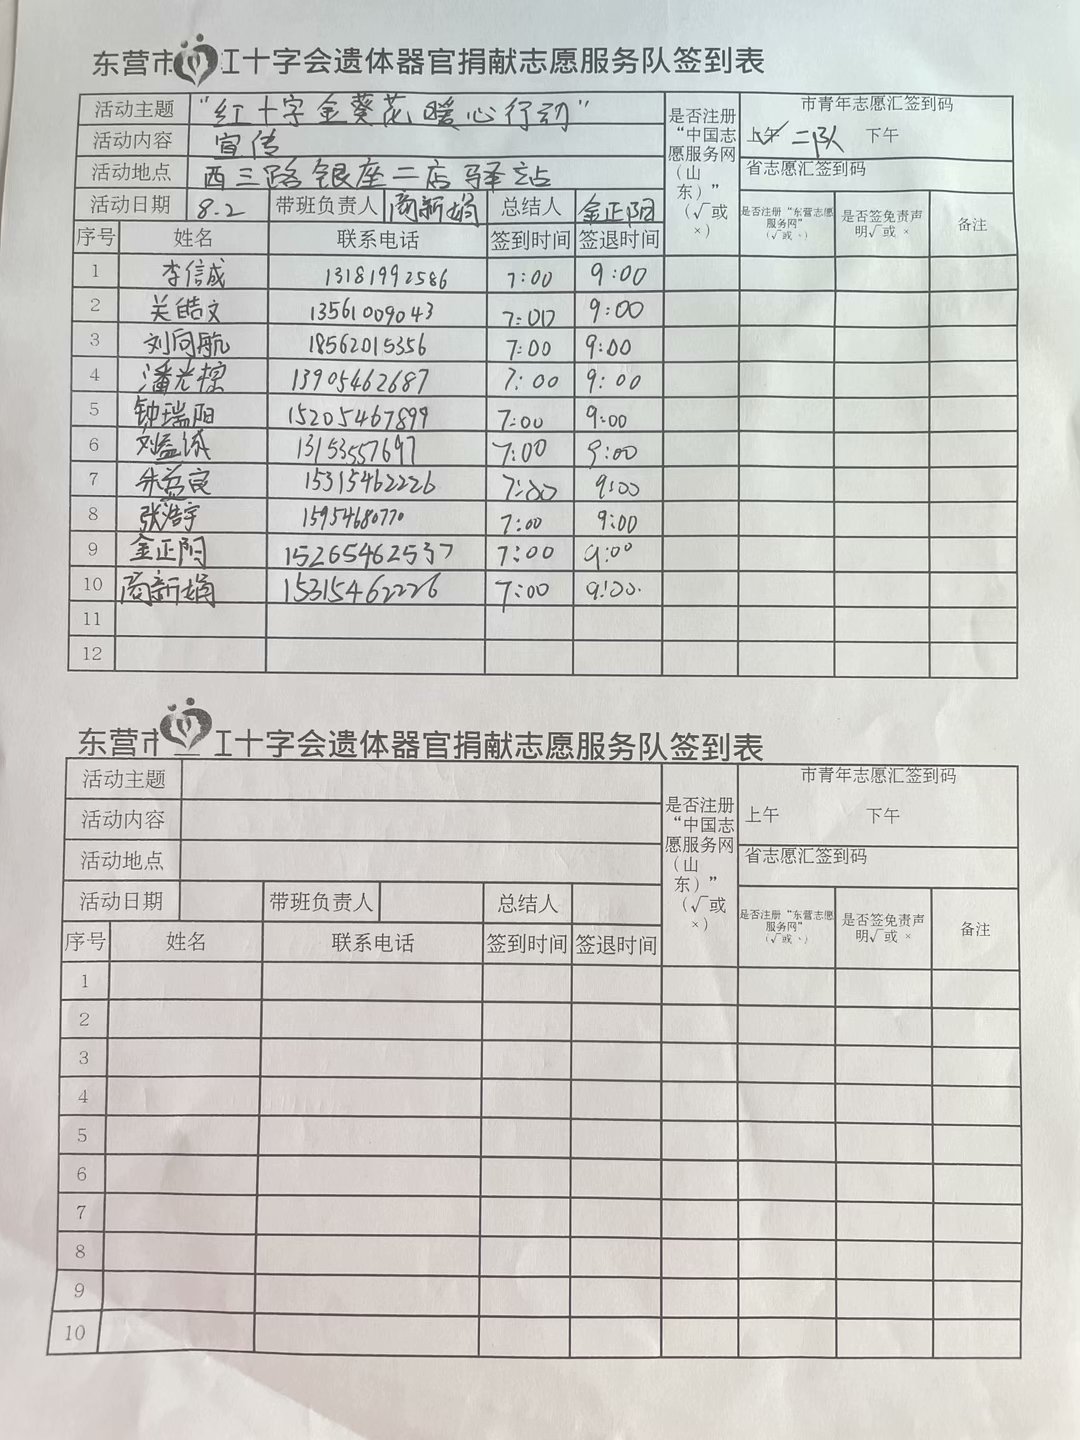 东营市红十字会遗体器官捐献志愿服务队签到表
活动主题 “红十字金葵花暖心行动” 是否注册“中国志愿服务网（山东）”（√或×） 市青年志愿汇签到码
活动内容 宣传 上午✓ 二队 下午
活动地点 西三路银座二店驿站 省志愿汇签到码
活动日期 8.2 带班负责人 商新娟 总结人 金正阳 是否注册“东营志愿服务网”（√或、） 是否签免责声明√或 × 备注
序号 姓名 联系电话 签到时间 签退时间
1 李信成 13181992586 7:00 9:00
2 关皓文 13561009043 7:00 9:00
3 刘向航 18562015356 7:00 9:00
4 潘光 13905462687 7:00 9:00
5 钟瑞阳 15205467899 7:00 9:00
6 刘益 13153557697 7:00 9:00
7 朱益良 15315462226 7:00 9:00
8 张浩宇 15954680770 7:00 9:00
9 金正阳 15265462537 7:00 9:00
10 商新娟 15315462226 7:00 9:00.
11
12
东营市红十字会遗体器官捐献志愿服务队签到表
活动主题 是否注册“中国志愿服务网（山东）”（√或×） 市青年志愿汇签到码
活动内容 上午 下午
活动地点 省志愿汇签到码
活动日期 带班负责人 总结人 是否注册“东营志愿服务网”（√或、） 是否签免责声明√或 × 备注
序号 姓名 联系电话 签到时间 签退时间
1
2
3
4
5
6
7
8
9
10